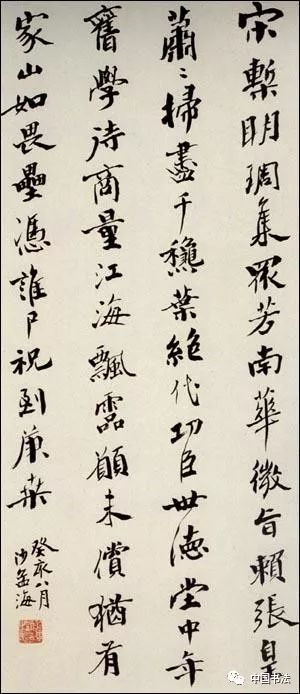 宋槧明琱集眾芳南華微旨賴張皇
蕭〻掃盡千穐葉絕代功臣世德堂中年
舊學待商量江海飄霝願未償猶有
家山如畏壘憑誰尸祝到庚桑
癸亥八月
沙孟海
中国书法